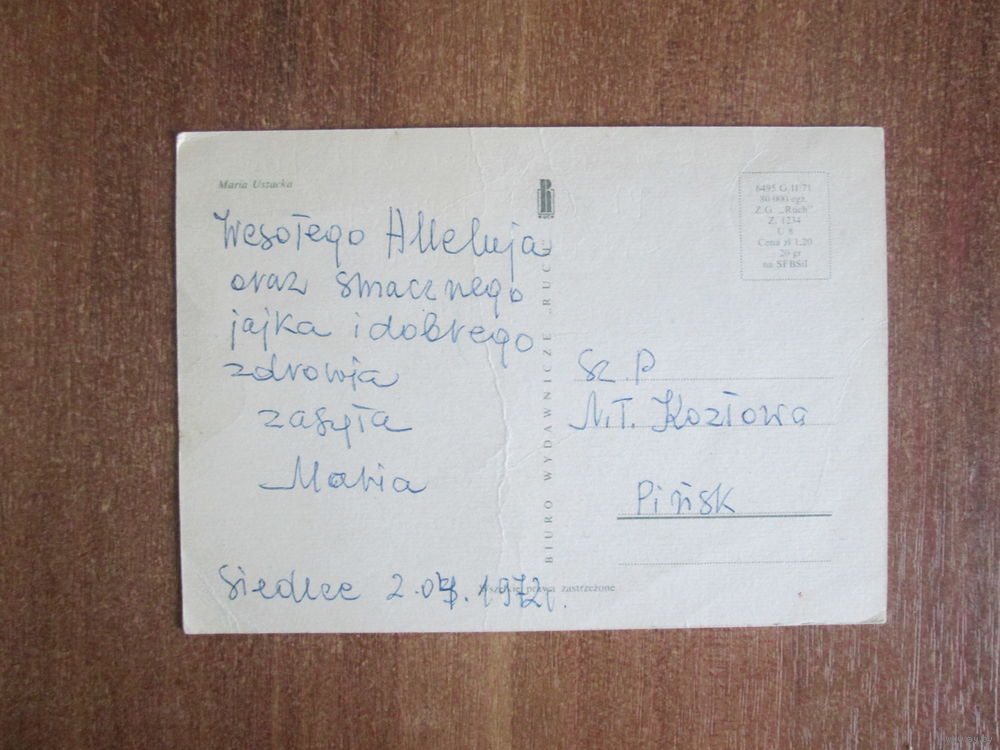 Maria Uszacka
Wesołego Alleluja
oraz smacznego
jajka i dobrego
zdrowja
zasyła
Maria
Siedlce 2.04.1972r.
RUCH
BIURO WYDAWNICZE „RUCH”
Wszelkie prawa zastrzeżone
6495 G II/71
80 000 egz.
Z.G. „Ruch”
Z. 1234
U 8
Cena zł 1,20
20 gr
na SFBSiI
Sz. P
N.T. Kozłowa
Pińsk